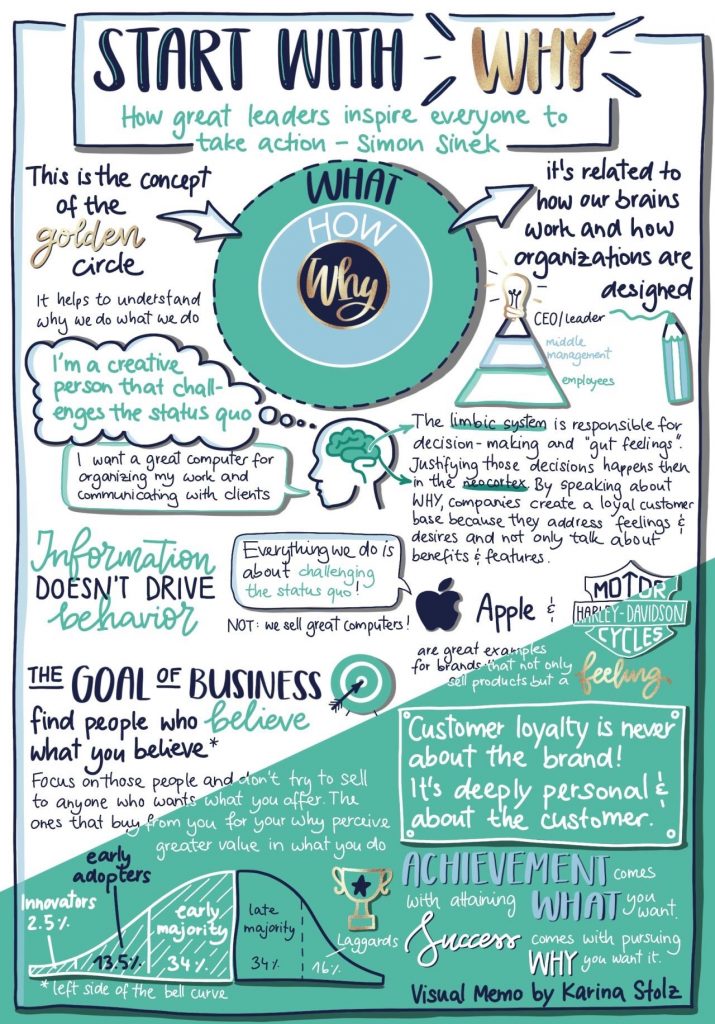 START WITH WHY
How great leaders inspire everyone to
take action - Simon Sinek
This is the concept
of the
golden
circle
It helps to understand
why we do what we do
WHAT
HOW
Why
it's related to
how our brains
work and how
organizations are
designed
CEO/leader
middle
management
employees
I'm a creative
person that chall-
enges the status quo
I want a great computer for
organizing my work and
communicating with clients
The limbic system is responsible for
decision-making and "gut feelings".
Justifying those decisions happens then
in the neocortex. By speaking about
WHY, companies create a loyal customer
base because they address feelings &
desires and not only talk about
benefits & features.
Information
DOESN'T DRIVE
behavior
Everything we do is
about challenging
the status quo!
NOT: we sell great computers!
Apple &
MOTOR
HARLEY-DAVIDSON
CYCLES
are great examples
for brands that not only
sell products but a feeling
THE GOAL OF BUSINESS
find people who believe
what you believe*
Focus on those people and don't try to sell
to anyone who wants what you offer. The
ones that buy from you for your why perceive
greater value in what you do
Customer loyalty is never
about the brand!
It's deeply personal &
about the customer.
Innovators
2.5%
early
adopters
13.5%
early
majority
34%
late
majority
34%
Laggards
16%
*left side of the bell curve
ACHIEVEMENT comes
with attaining WHAT you
want.
Success comes with pursuing
WHY you want it.
Visual Memo by Karina Stolz